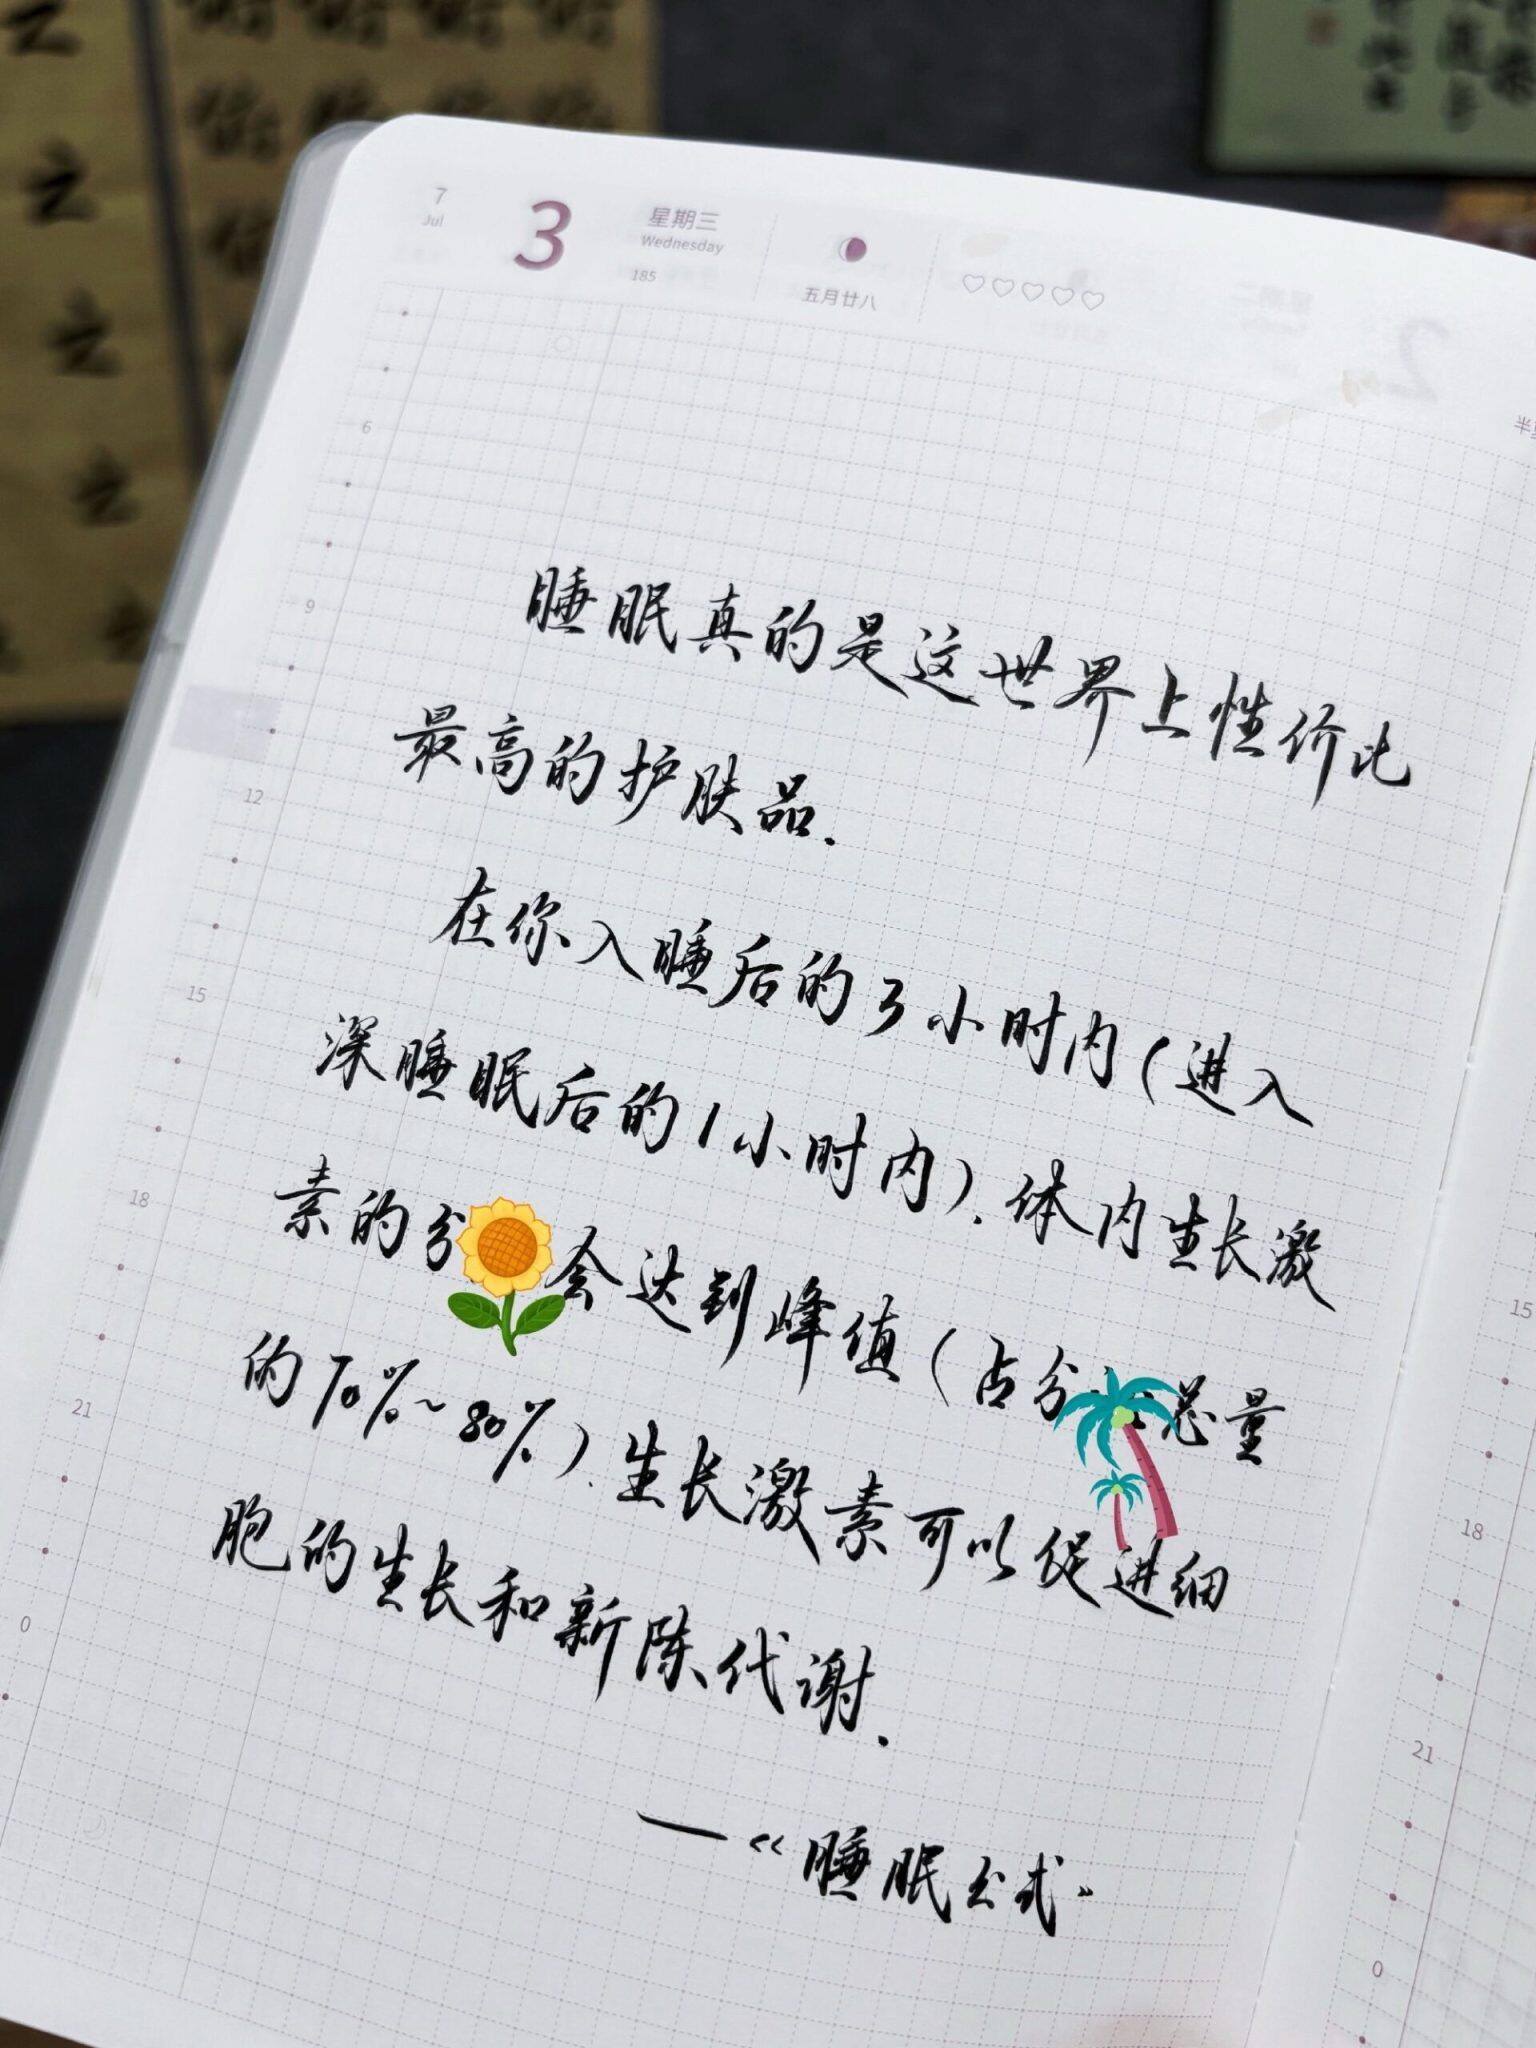 7
Jul
3
星期三
Wednesday
185
五月廿八
6
9
12
15
18
21
0
睡眠真的是这世界上性价比
最高的护肤品.
在你入睡后的3小时内(进入
深睡眠后的1小时内).体内生长激
素的分 会达到峰值(占分 总量
的70%~80%).生长激素可以促进细
胞的生长和新陈代谢.
—《睡眠公式》
15
18
21
0